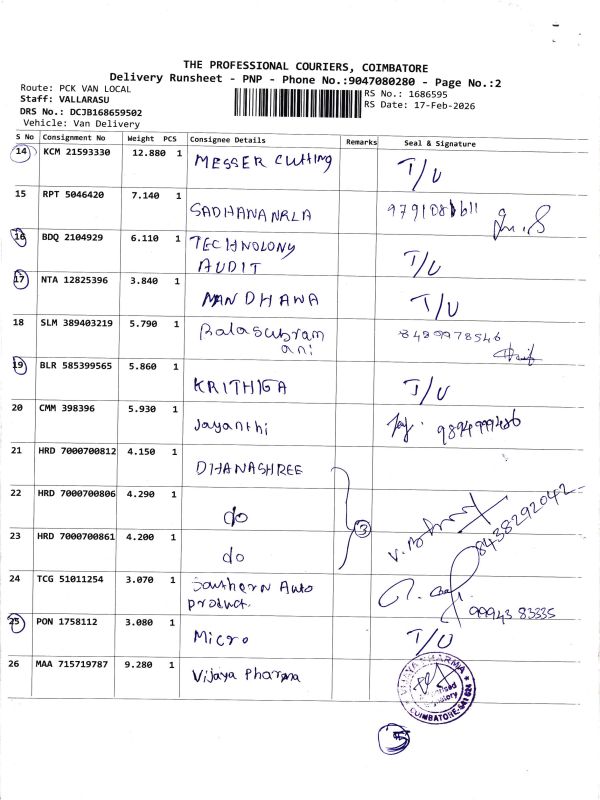 THE PROFESSIONAL COURIERS, COIMBATORE
Delivery Runsheet - PNP - Phone No.:9047080280 - Page No.:2
Route: PCK VAN LOCAL
Staff: VALLARASU
DRS No.: DCJB168659502
Vehicle: Van Delivery
RS No.: 1686595
RS Date: 17-Feb-2026
S No Consignment No Weight PCS Consignee Details Remarks Seal & Signature
14 KCM 21593330 12.880 1 MESSER Cutting T/U
15 RPT 5046420 7.140 1 SADHANANRLA
16 BDQ 2104929 6.110 1 TECHNOLONY
AUDIT T/U
17 NTA 12825396 3.840 1 MANDHANA T/U
18 SLM 389403219 5.790 1 Balasubram
ani 8489978546
19 BLR 585399565 5.860 1 KRITHIGA T/U
20 CMM 398396 5.930 1 Jayanthi
21 HRD 7000700812 4.150 1 DHANASHREE
22 HRD 7000700806 4.290 1 do
3
23 HRD 7000700861 4.200 1 do 8438292042
24 TCG 51011254 3.070 1 Southern Auto
product. 99943 83335
25 PON 1758112 3.080 1 Micro T/U
26 MAA 715719787 9.280 1 Vijaya Pharma
VIJAYA PHARMA
COIMBATORE-641 024